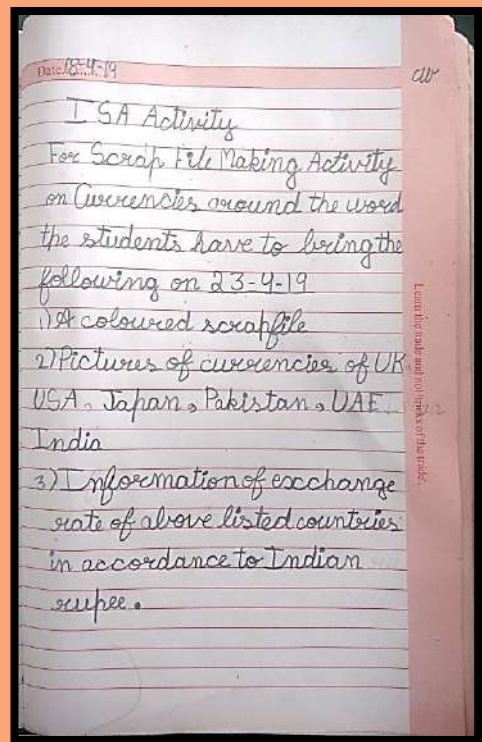 Date 18-4-19
cw
ISA Activity
For Scrap File Making Activity
on Currencies around the word
the students have to bring the
following on 23-4-19
1) A coloured scrapfile
2) Pictures of currencies of UK
USA, Japan, Pakistan, UAE
India
3) Information of exchange
rate of above listed countries
in accordance to Indian
rupee.
Learn the trade and not tricks of the trade.